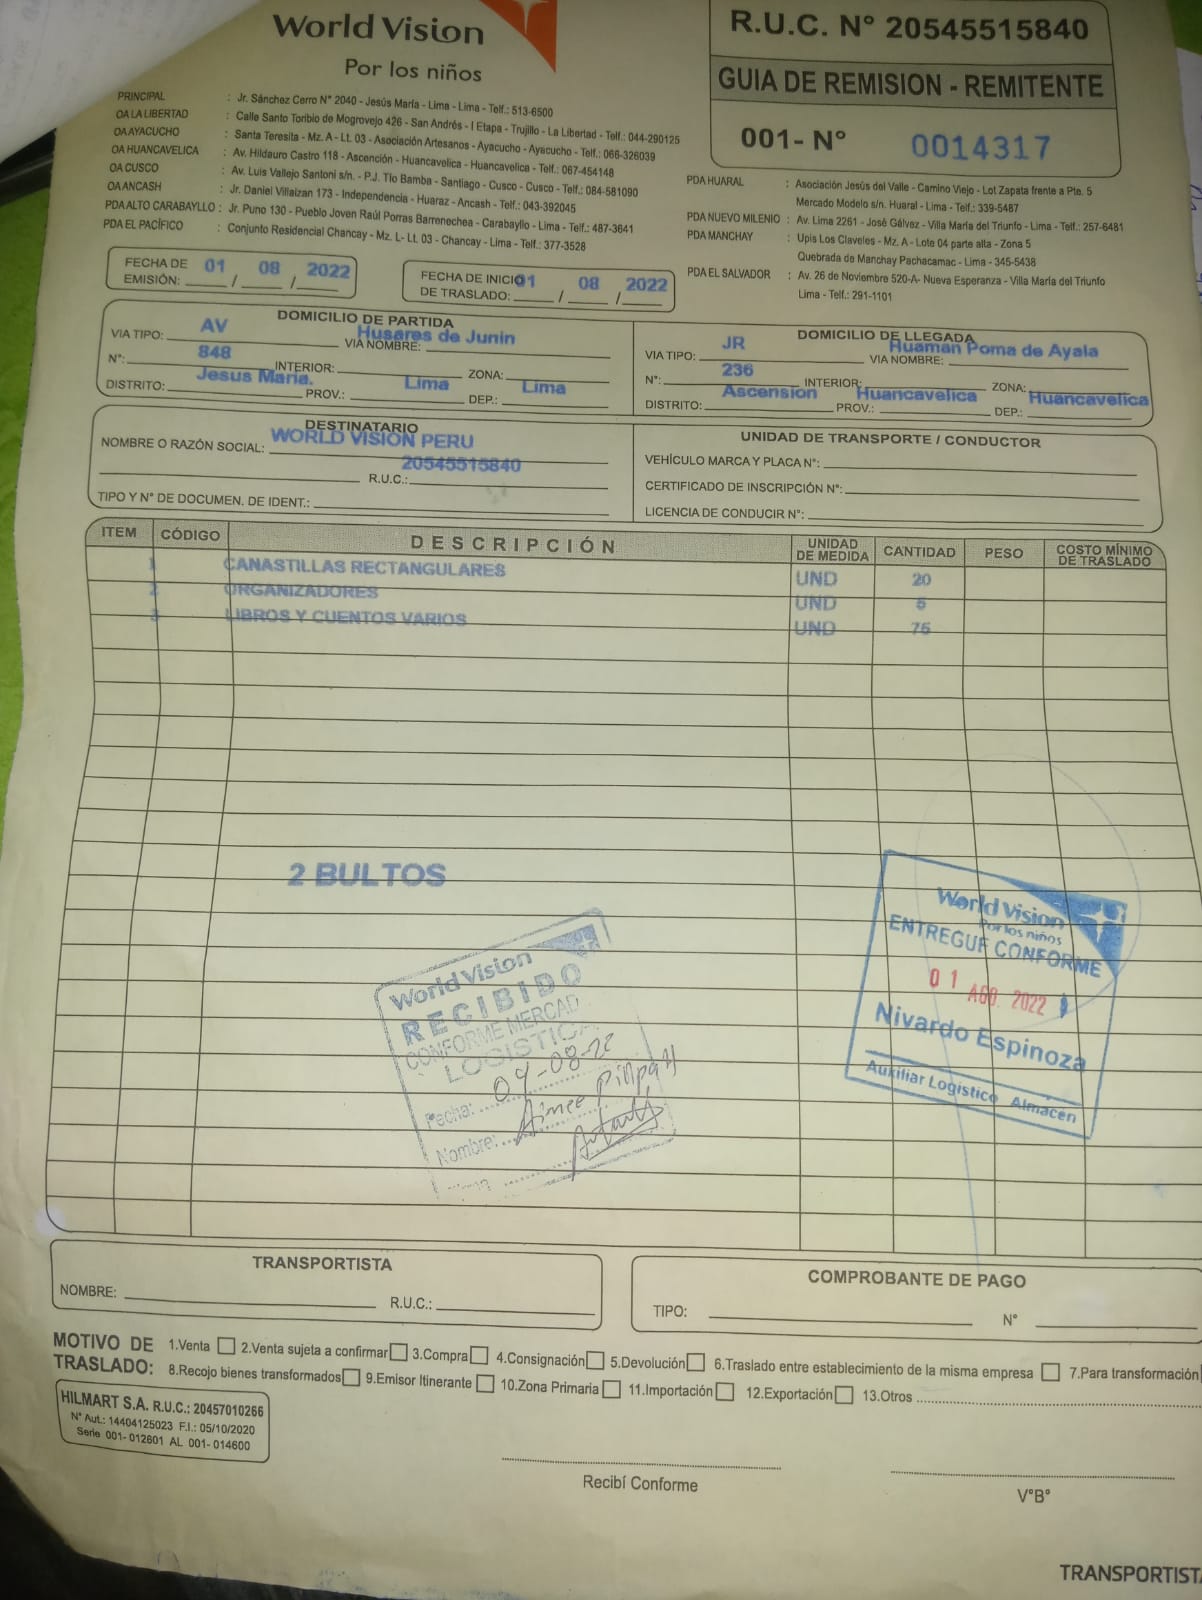 World Vision
Por los niños
R.U.C. N° 20545515840
GUIA DE REMISION - REMITENTE
001- N° 0014317
PRINCIPAL : Jr. Sánchez Cerro N° 2040 - Jesús María - Lima - Lima - Telf.: 513-6500
OA LA LIBERTAD : Calle Santo Toribio de Mogrovejo 426 - San Andrés - I Etapa - Trujillo - La Libertad - Telf.: 044-290125
OA AYACUCHO : Santa Teresita - Mz. A - Lt. 03 - Asociación Artesanos - Ayacucho - Ayacucho - Telf.: 066-326039
OA HUANCAVELICA : Av. Hildauro Castro 118 - Ascención - Huancavelica - Huancavelica - Telf.: 067-454148
OA CUSCO : Av. Luis Vallejo Santoni s/n. - P.J. Tío Bamba - Santiago - Cusco - Cusco - Telf.: 084-581090
OA ANCASH : Jr. Daniel Villaizan 173 - Independencia - Huaraz - Ancash - Telf.: 043-392045
PDA ALTO CARABAYLLO : Jr. Puno 130 - Pueblo Joven Raúl Porras Barrenechea - Carabayllo - Lima - Telf.: 487-3641
PDA EL PACÍFICO : Conjunto Residencial Chancay - Mz. L- Lt. 03 - Chancay - Lima - Telf.: 377-3528
PDA HUARAL : Asociación Jesús del Valle - Camino Viejo - Lot Zapata frente a Pte. 5
Mercado Modelo s/n. Huaral - Lima - Telf.: 339-5487
PDA NUEVO MILENIO : Av. Lima 2261 - José Gálvez - Villa María del Triunfo - Lima - Telf.: 257-6481
PDA MANCHAY : Upis Los Claveles - Mz. A - Lote 04 parte alta - Zona 5
Quebrada de Manchay Pachacamac - Lima - 345-5438
PDA EL SALVADOR : Av. 26 de Noviembre 520-A- Nueva Esperanza - Villa María del Triunfo
Lima - Telf.: 291-1101
FECHA DE EMISIÓN: 01 / 08 / 2022
FECHA DE INICIO DE TRASLADO: 01 / 08 / 2022
DOMICILIO DE PARTIDA
VIA TIPO: AV VIA NOMBRE: Husares de Junin
N°: 848 INTERIOR: ZONA:
DISTRITO: Jesus Maria. PROV.: Lima DEP.: Lima
DOMICILIO DE LLEGADA
VIA TIPO: JR VIA NOMBRE: Huaman Poma de Ayala
N°: 236 INTERIOR: ZONA:
DISTRITO: Ascension PROV.: Huancavelica DEP.: Huancavelica
DESTINATARIO
NOMBRE O RAZÓN SOCIAL: WORLD VISION PERU
R.U.C.: 20545515840
TIPO Y N° DE DOCUMEN. DE IDENT.:
UNIDAD DE TRANSPORTE / CONDUCTOR
VEHÍCULO MARCA Y PLACA N°:
CERTIFICADO DE INSCRIPCIÓN N°:
LICENCIA DE CONDUCIR N°:
ITEM CÓDIGO DESCRIPCIÓN UNIDAD DE MEDIDA CANTIDAD PESO COSTO MÍNIMO DE TRASLADO
1 CANASTILLAS RECTANGULARES UND 20
2 ORGANIZADORES UND 5
3 LIBROS Y CUENTOS VARIOS UND 75
2 BULTOS
World Vision
RECIBIDO
CONFORME MERCAD.
LOGISTICA
Fecha: 04-08-22
Nombre: Aimee
World Vision
Por los niños
ENTREGUE CONFORME
01 AGO. 2022
Nivardo Espinoza
Auxiliar Logístico Almacen
TRANSPORTISTA
NOMBRE: R.U.C.:
COMPROBANTE DE PAGO
TIPO: N°
MOTIVO DE TRASLADO: 1.Venta 2.Venta sujeta a confirmar 3.Compra 4.Consignación 5.Devolución 6.Traslado entre establecimiento de la misma empresa 7.Para transformación
8.Recojo bienes transformados 9.Emisor Itinerante 10.Zona Primaria 11.Importación 12.Exportación 13.Otros
HILMART S.A. R.U.C.: 20457010266
N° Aut.: 14404125023 F.I.: 05/10/2020
Serie 001- 012601 AL 001- 014600
Recibí Conforme
V°B°
TRANSPORTISTA